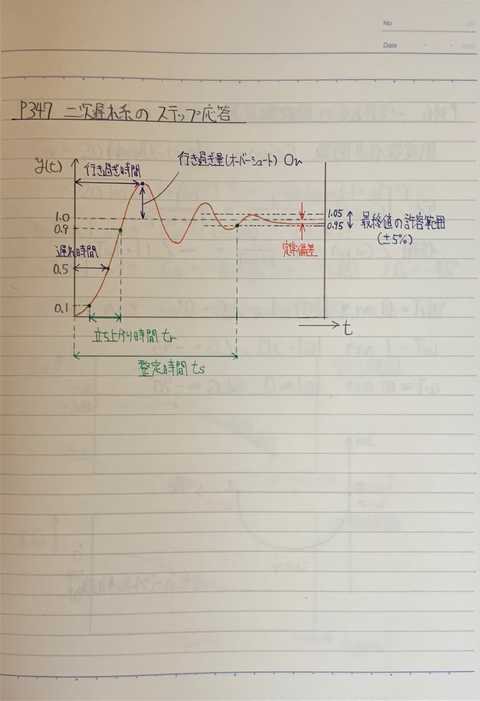 No
Date
P347 二次遅れ系の ステップ応答
y(t)
行き過ぎ時間
行き過ぎ量(オーバーシュート) Om
1.0
0.9
遅れ時間
0.5
0.1
1.05
0.95
最終値の許容範囲
(±5%)
定常偏差
t
立ち上がり時間 tr
整定時間 ts